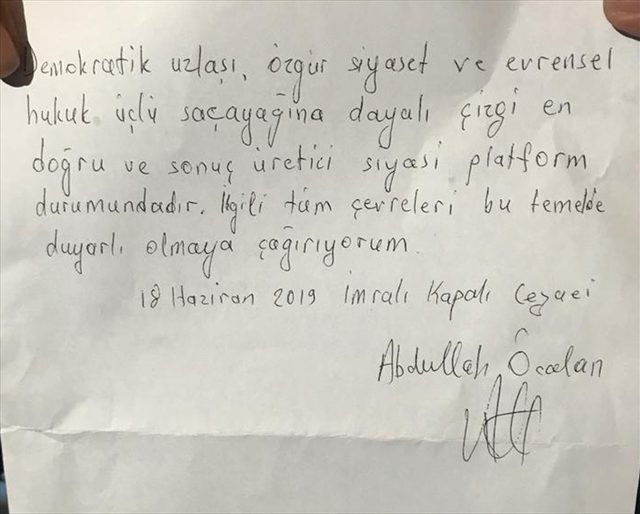 Demokratik uzlaşı, özgür siyaset ve evrensel
hukuk üçlü saçayağına dayalı çizgi en
doğru ve sonuç üretici siyasi platform
durumundadır. İlgili tüm çevreleri bu temelde
duyarlı olmaya çağırıyorum
18 Haziran 2019 İmralı Kapalı Cezaevi
Abdullah Öcalan